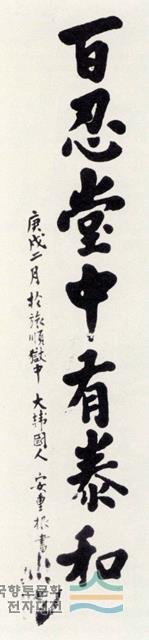 百忍堂中有泰和
庚戌二月 於旅順獄中 大韓國人 安重根書
향토문화
전자대전